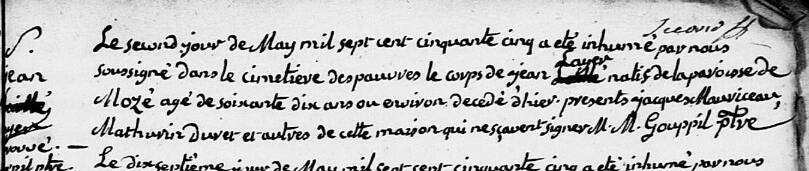 S.
jean
Le second jour de May mil sept cent cinquante cinq a eté inhumé par nous
soussigné dans le cimetiere des pauvres le corps de jean Layer natif de la paroisse de
Mozé agé de soixante dix ans ou environ decedé d'hier presents jacques Mauriceau,
Mathurin Duret et autres de cette maison qui ne sçavent signer M. M. Gouppil ptre
Le dix septième jour de May mil sept cent cinquante cinq a eté inhumé par nous